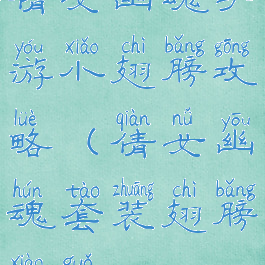 倩女幽魂手
yóu xiǎo chì bǎng gōng
游小翅膀攻
lüè qiàn nǚ yōu
略（倩女幽
hún tào zhuāng chì bǎng
魂套装翅膀
xiào guǒ